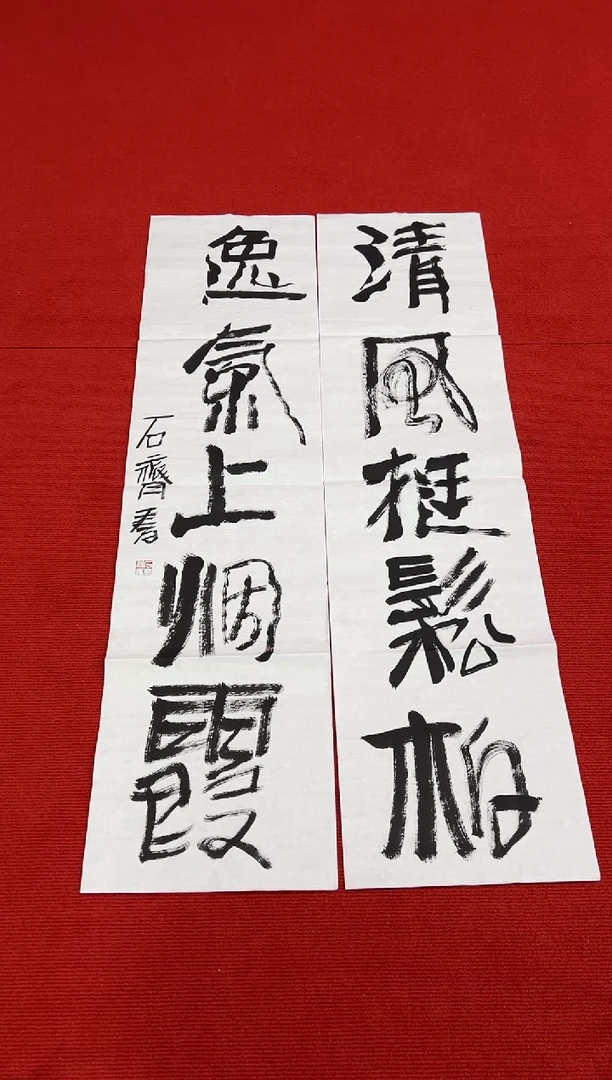 清風挺鬆柏
逸氣上烟霞
石齊書